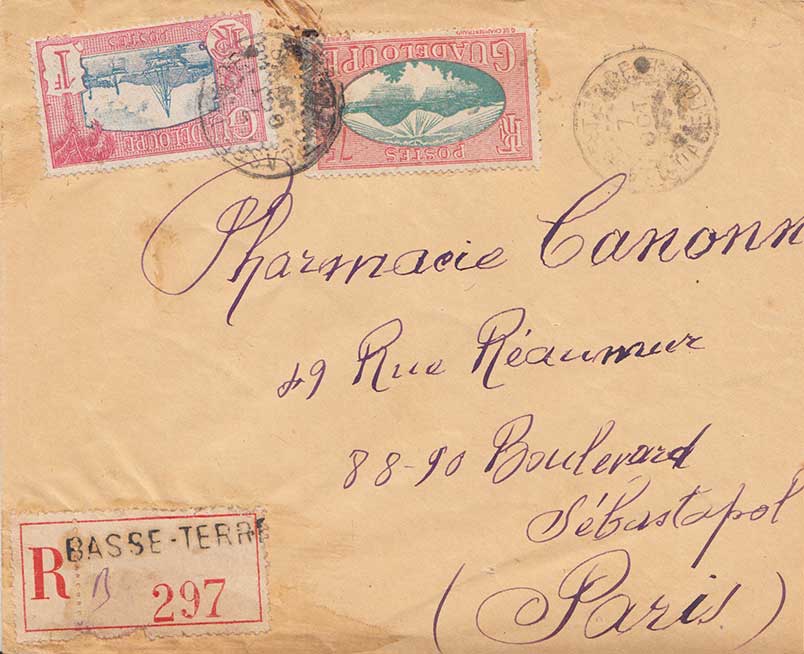 1F
RF
POSTES
GUADELOUPE
GUADELOUPE
POSTES
RF
Pharmacie Canonn
49 Rue Réaumur
88-90 Boulevard
Sébastopol
(Paris)
R BASSE-TERRE
B 297